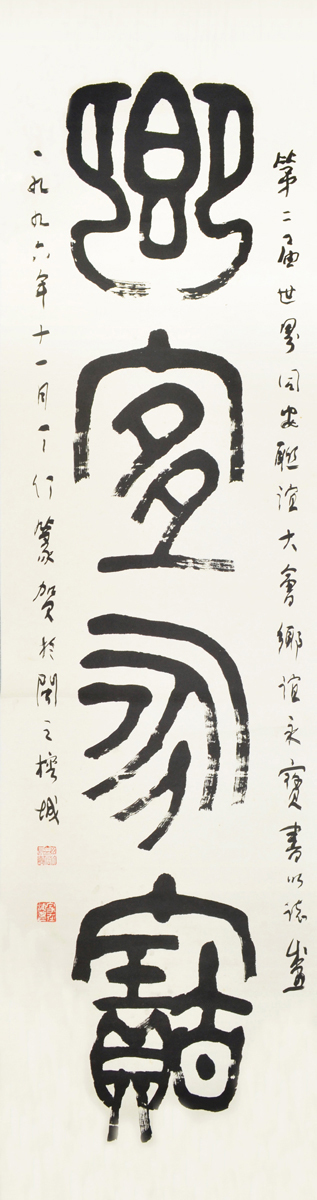 第二届世界同安聯誼大會鄉誼永寶書以誌盛
鄉宜永寶
一九九六年十一月丁仃篆賀於閩之榕城